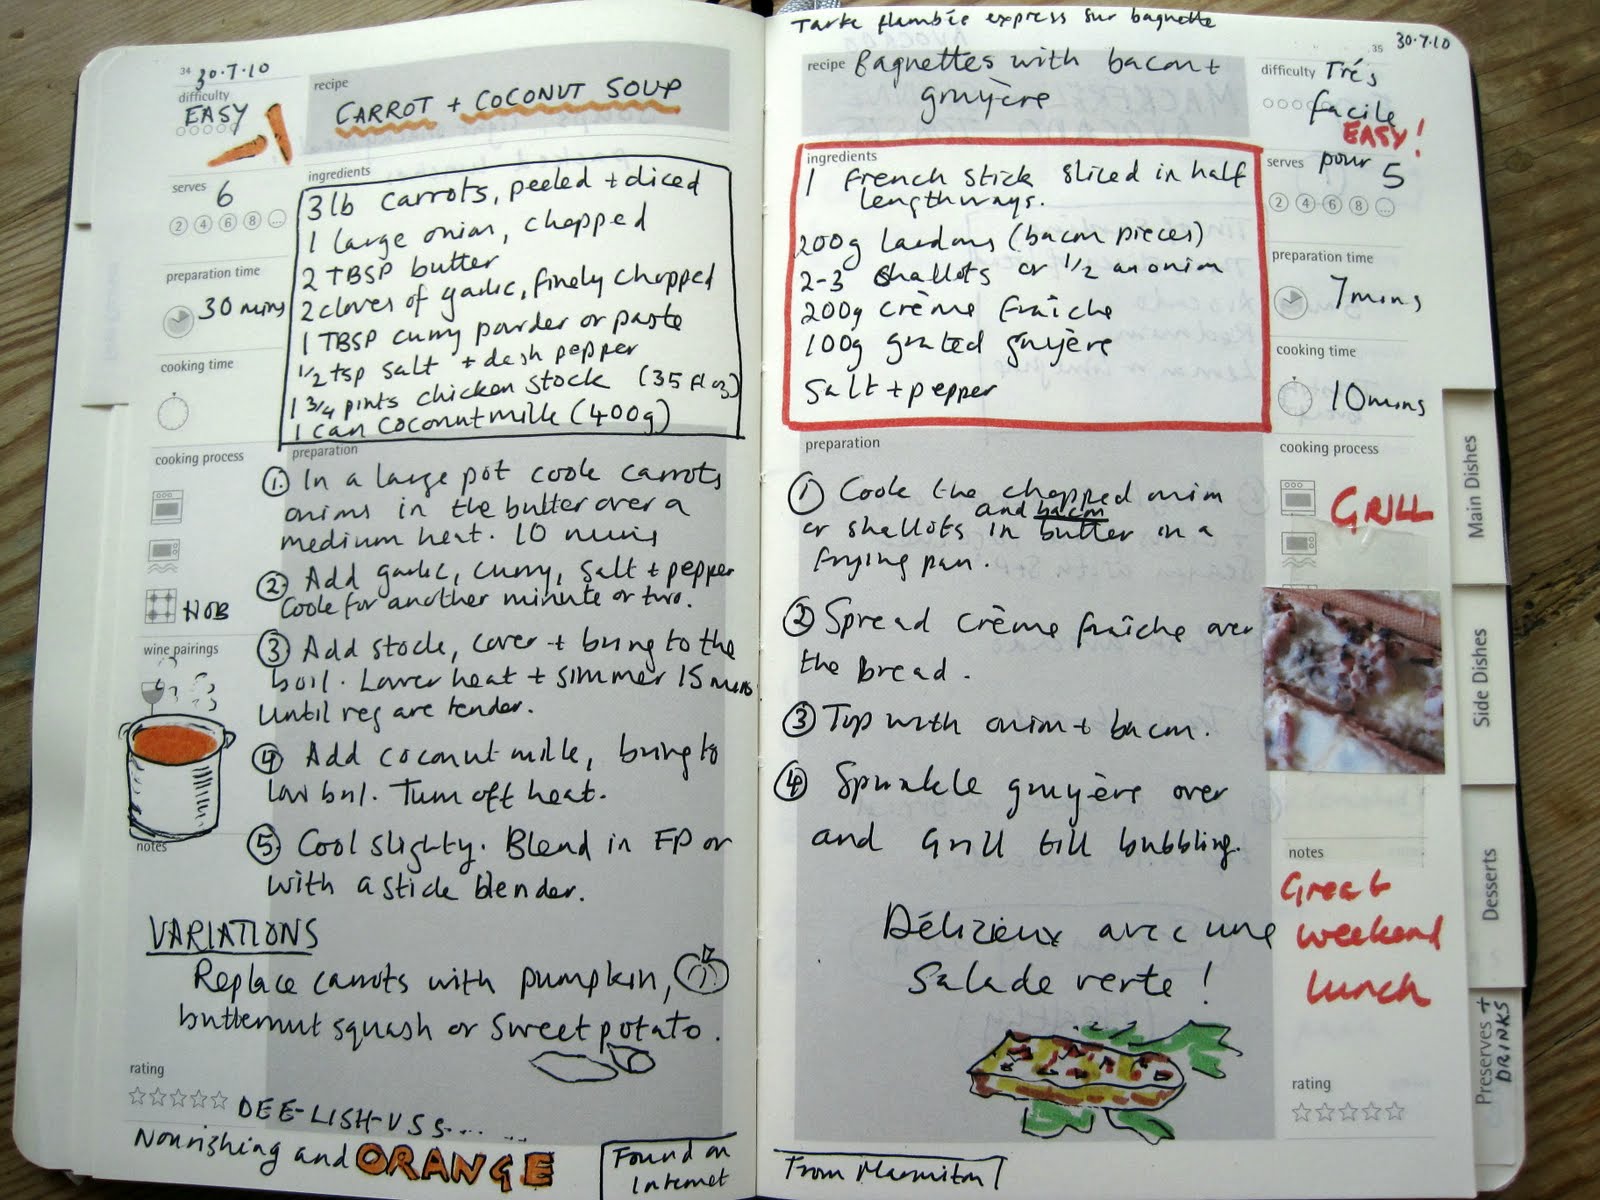 34 30.7.10
difficulty
EASY
recipe
CARROT + COCONUT SOUP
serves
6
2 4 6 8 ...
preparation time
30 mins
cooking time
cooking process
HOB
wine pairings
ingredients
3 lb carrots, peeled + diced
1 large onion, chopped
2 TBSP butter
2 cloves of garlic, finely chopped
1 TBSP curry powder or paste
1/2 tsp salt + dash pepper
1 3/4 pints chicken stock (35 fl oz)
1 can coconut milk (400g)
preparation
1. In a large pot cook carrots
onions in the butter over a
medium heat. 10 mins
2. Add garlic, curry, salt + pepper
Cook for another minute or two.
3 Add stock, cover + bring to the
boil. Lower heat + simmer 15 mins
until veg are tender.
4 Add coconut milk, bring to
low boil. Turn off heat.
5 Cool slightly. Blend in FP or
with a stick blender.
notes
VARIATIONS
Replace carrots with pumpkin,
butternut squash or sweet potato.
rating
DEE-LISH-USS......
Nourishing and ORANGE
Found on
Internet
Tarte flambée express sur baguette
35 30.7.10
recipe Baguettes with bacon +
gruyère
difficulty Trés
facile
EASY!
ingredients
1 french stick sliced in half
lengthways.
200g lardons (bacon pieces)
2-3 shallots or 1/2 an onion
200g crème fraîche
100g grated gruyère
Salt + pepper
serves pour 5
2 4 6 8 ...
preparation time
7 mins
cooking time
10 mins
cooking process
GRILL
preparation
1 Cook the chopped onion
and bacon
or shallots in butter in a
frying pan.
2 Spread crème fraîche over
the bread.
3 Top with onion + bacon.
4 Sprinkle gruyère over
and Grill till bubbling.
Délizieux avec une
Salade verte!
notes
Great
weekend
lunch
rating
From Marmiton
Main Dishes
Side Dishes
Desserts
Preserves +
DRINKS